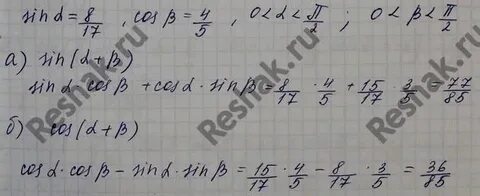 sin α = 8/17 , cos β = 4/5 , 0 < α < π/2 ; 0 < β < π/2
а) sin (α + β)
sin α · cos β + cos α · sin β = 8/17 · 4/5 + 15/17 · 3/5 = 77/85
б) cos (α + β)
cos α · cos β − sin α · sin β = 15/17 · 4/5 − 8/17 · 3/5 = 36/85
Reshak.ru
Reshak.ru
Reshak.ru